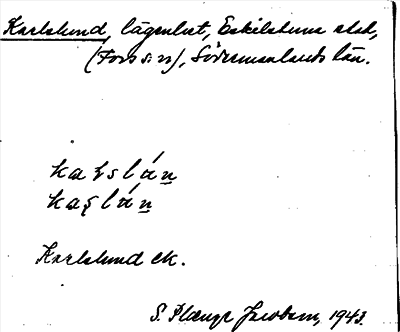 Karlslund, lägenhet, Eskilstuna stad,
(Fors sn), Södermanlands län.
kaꞭslán
kaşlán
Karlslund ek.
S. Jacobson, 1943.